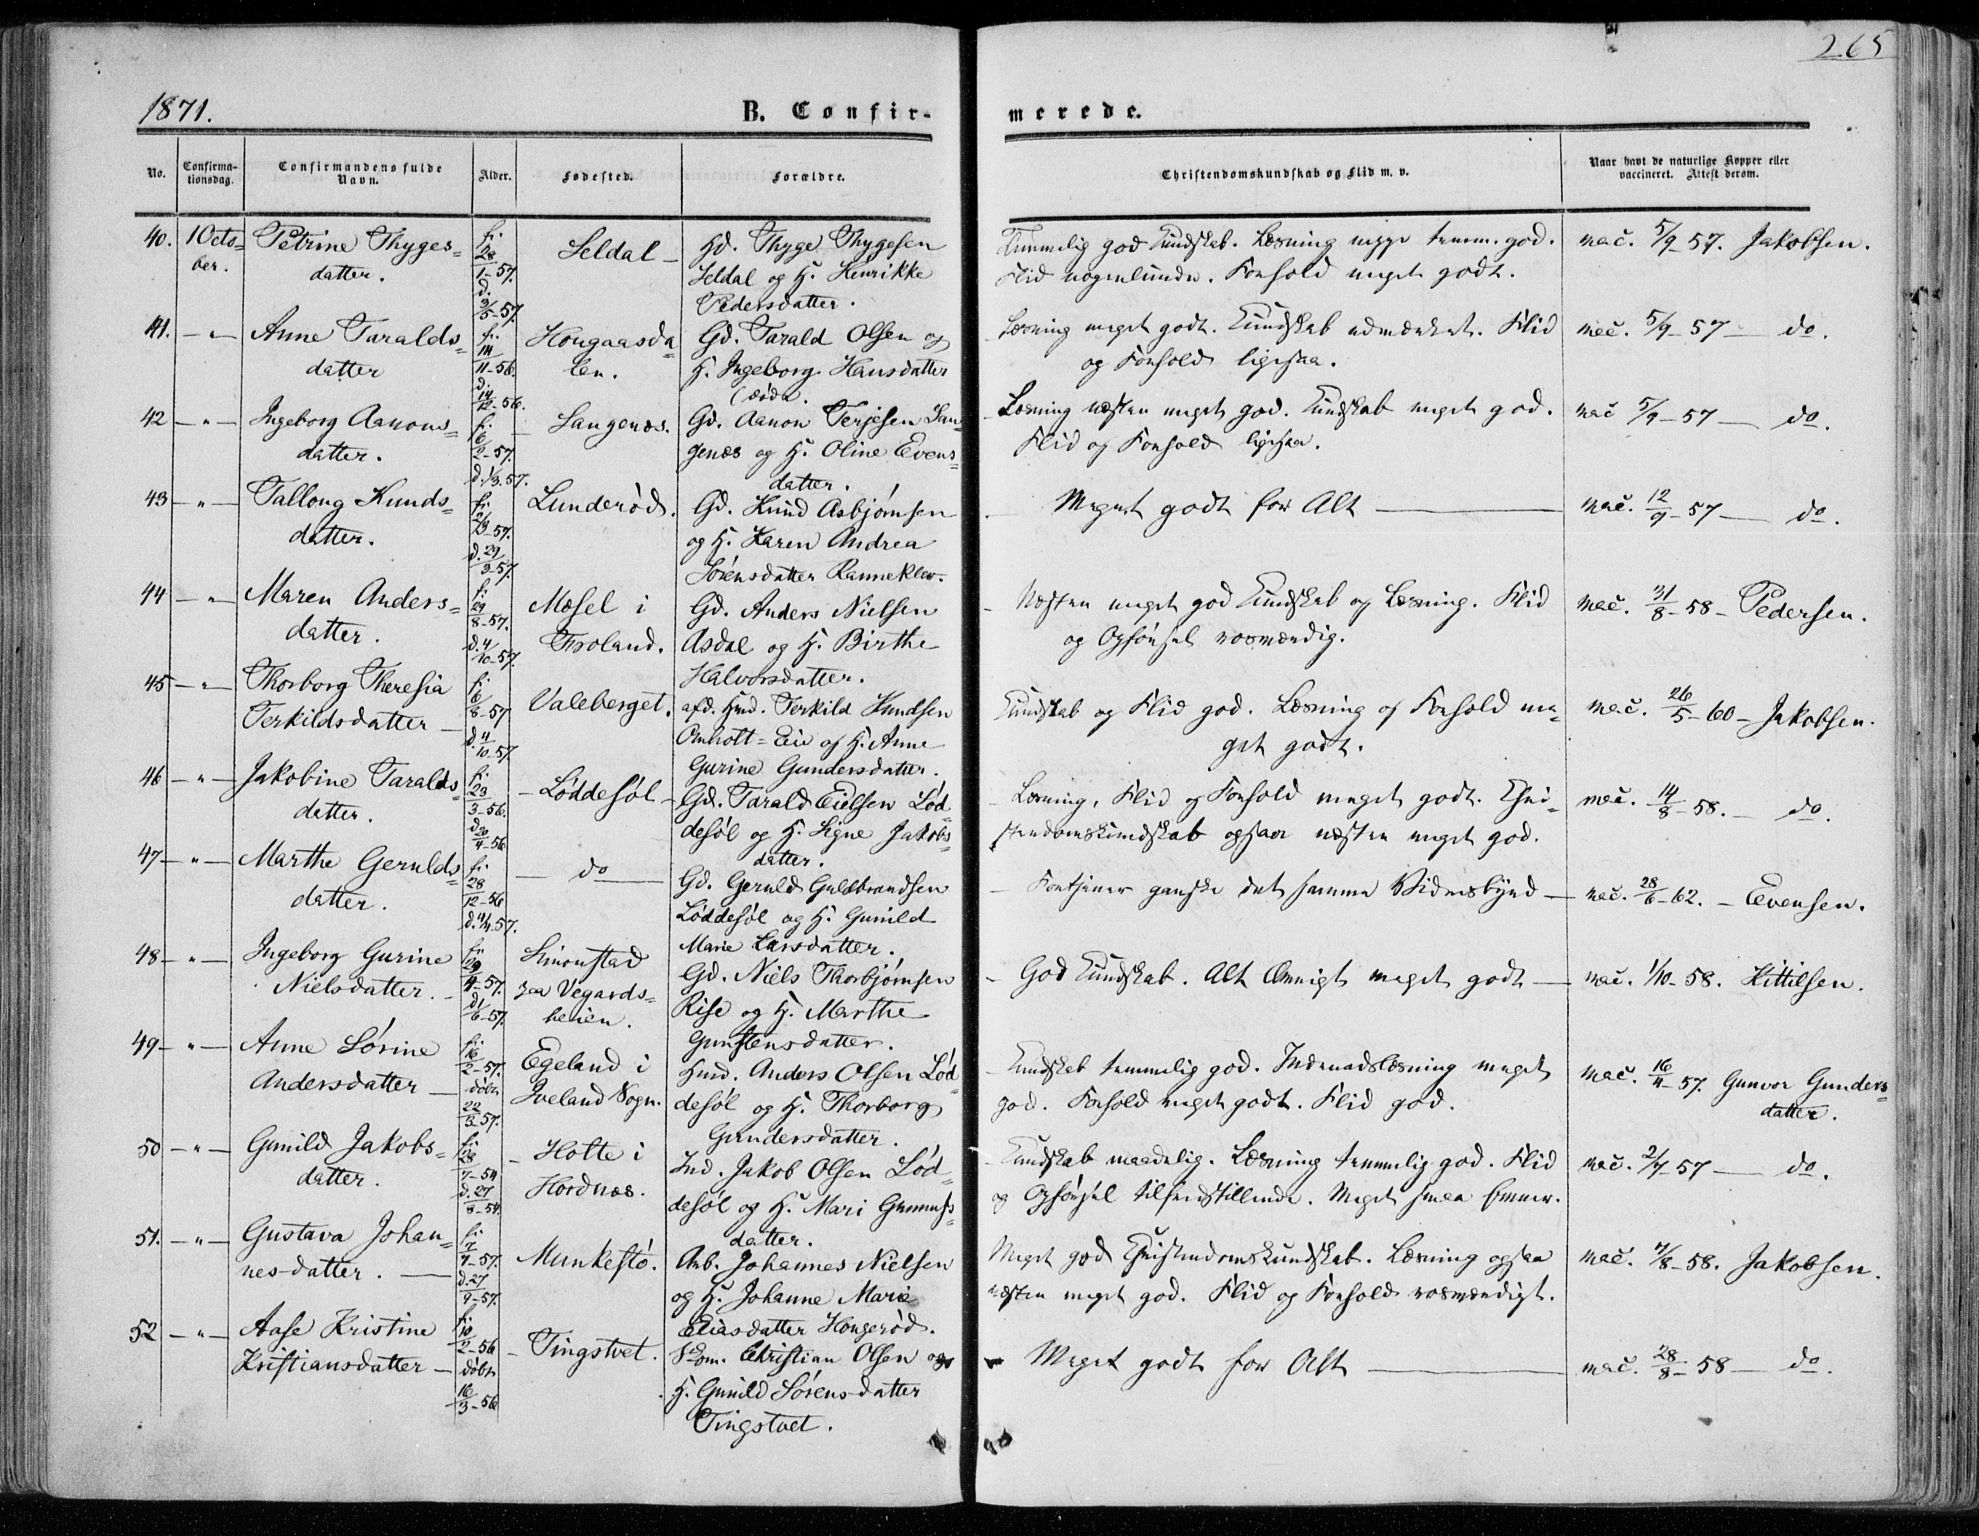 265
1871.
B. Confir-
merede.
No.
Confirma-
tionsdag.
Confirmandens fulde
Navn.
Alder.
Fødested.
Forældre.
Christendomskundskab og Flid m. v.
Naar havt de naturlige Kopper eller
vaccineret. Attest derom.
40. 1 Octo- Petrine Thyges- f. 28/1-57. Seldal - Gd. Thyge Thygesen Temmelig god Kundskab. Læsning neppe temm. god. vac. 5/9-57. Jakobsen.
ber. datter. d. 3/5-57. Seldal og H. Henrikke Flid nogenlunde. Forhold meget godt.
Pedersdatter.
41. - " - Anne Taralds- f. 14/11-56. Hougaasda- Gd. Tarald Olsen og Læsning meget godt. Kundskab udmærket. Flid vac. 5/9-57 - do.
datter d. 14/12-56. len. H. Ingeborg Hansdatter og Forhold ligesaa.
(død).
42 - " - Ingeborg Aanons- f. 6/2-57. Langenæs. Gd. Aanon Terjesen Lan- Læsning næsten meget god. Kundskab meget god. vac 5/9-57 - do.
datter. d. 1/3.57. genæs og H. Oline Evens- Flid og Forhold ligesaa.
datter.
43 - " - Talloug Knuds- f. 2/3-57. Lunderød. Gd. Knud Asbjørnsen - Meget godt for Alt - vac. 12/9-57 - do.
datter. d. 29/3-57. og H. Karen Andrea
Sørensdatter Ranneklev.
44 - " - Maren Anders- f. 29/8-57. Mæsel i Gd. Anders Nielsen - Næsten meget god Kundskab og Læsning. Flid vac. 31/8-58 - Pedersen.
datter. d. 4/10-57. Froland. Asdal og H. Birthe og Opførsel rosværdig.
Halvorsdatter.
45 - " - Thorborg Theresia f. 6/8-57 Valeberget. afd. Hmd. Terkild Knudsen Kundskab og Flid god. Læsning og Forhold me- vac. 26/5-60 - Jakobsen.
Terkildsdatter - d. 4/10-57. Omholt-Eie og H. Anne get godt.
Gurine Gundersdatter.
46 - " - Jakobine Taralds- f. 23/3-56. - Løddesøl - Gd. Tarald Eielsen Lød- - Læsning, Flid og Forhold meget godt. Chri- vac. 14/8-58. - do.
datter. d. 20/4-56 desøl og H. Signe Jakobs- stendomskundskab ogsaa næsten meget god.
datter.
47 - " - Marthe Gerulds- f. 28/12-56 - do - Gd. Geruld Gulbrandsen - Fortjener ganske det samme Vidnesbyrd - vac. 28/6-62. - Evensen.
datter. d. 1/4-57. Løddesøl og H. Gunild
Marie Larsdatter.
48 - " - Ingeborg Gurine f. 29/4-57. Simonstad Gd. Niels Thorbjørnsen - God Kundskab. Alt Øvrigt meget godt - vac. 1/10-58. Kittilsen.
Nielsdatter. - d. 1/6-57. paa Vegards- Rise og H. Marthe
heien. Gunstensdatter.
49 - " - Anne Sørine f. 16/2-57. Egeland i Hmd. Anders Olsen Lød- - Kundskab temmelig god. Indenadslæsning meget vac. 16/4-57. Gunvor Gunders-
Andersdatter - døbt 22/3-57. Iveland Sogn. desøl og H. Thorborg god. Forhold meget godt. Flid god. datter.
Gundersdatter.
50 - " - Gunild Jakobs- f. 28/7-54 - Holte i Ind. Jakob Olsen Lød- - Kundskab maadelig. Læsning temmelig god. Flid vac. 2/7-57 - do.
datter. d. 27/8-54. Hordnæs. desøl og H. Mari og Opførsel tilfredsstillende. Meget smaa Evner.
datter.
51. - " - Gustava Johan- f. 7/7-57. Munkestø. Arb. Johannes Nielsen Meget god Christendomskundskab. Læsning ogsaa vac. 7/8-58. Jakobsen.
nes-datter. - d. 27/9-57. og H. Johanne Marie næsten meget god. Flid og Forhold rosværdigt.
Eliasdatter Hougerød.
52 - " - Aase Kristine f. 10/2-56 - Tingstvet. Christian Olsen og - Meget godt for Alt - vac. 28/8-58 - do.
Kristiansdatter - døbt 16/3-56 H. Gunild Sørens-datter
Tingstvet.